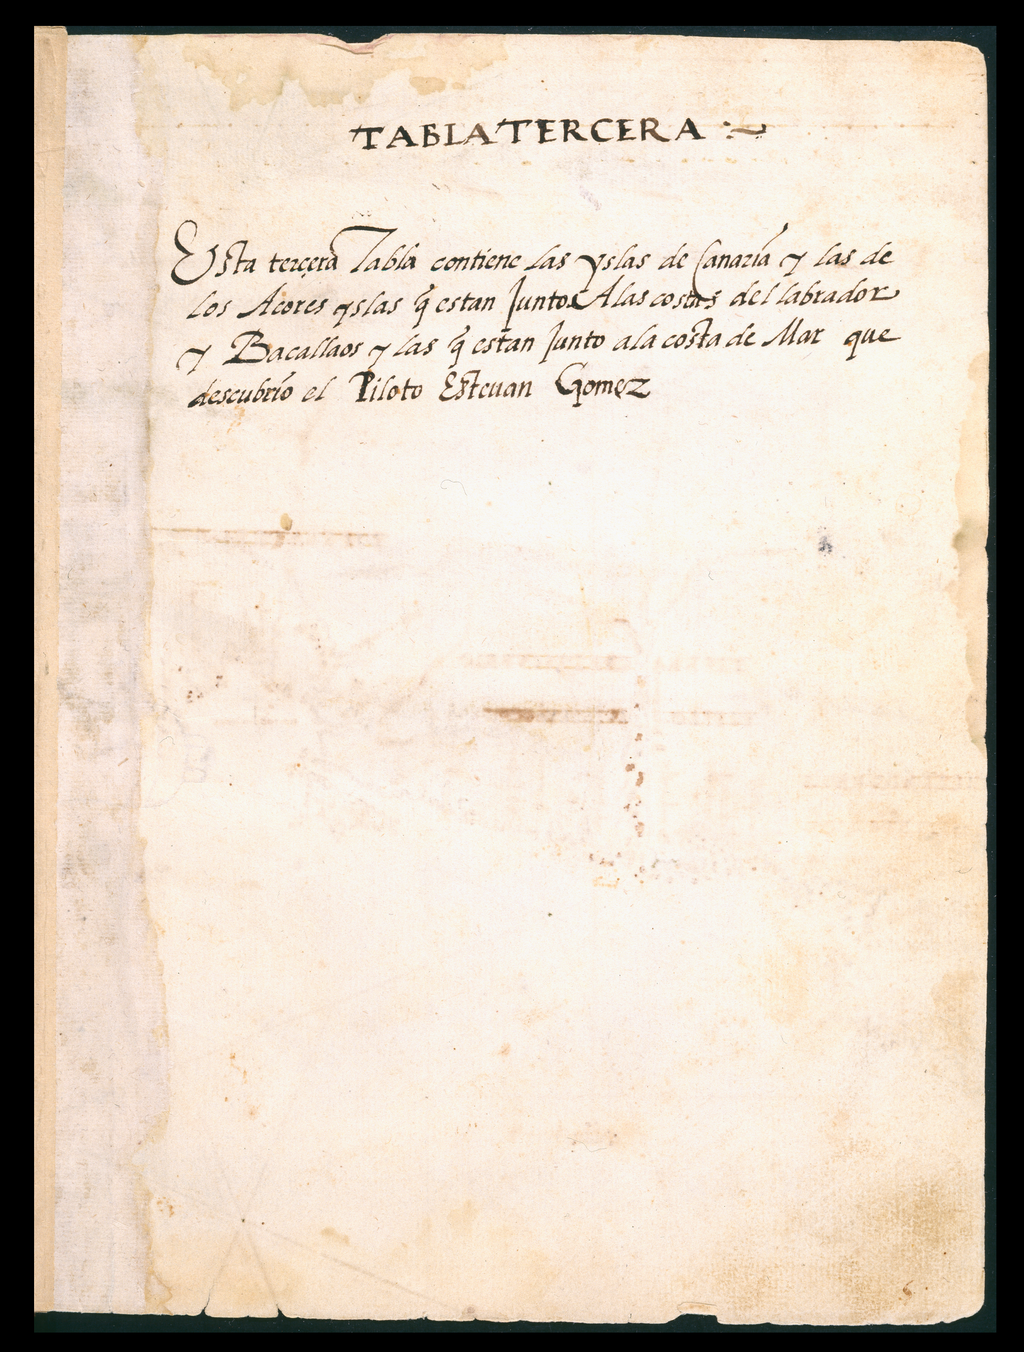 TABLA TERCERA
Esta tercera Tabla contiene las yslas de Canaria y las de
los Acores yslas q̃ estan Junto A las costas del labrador
y Bacallaos y las q̃ estan Junto a la costa de Mar que
descubrio el Piloto Esteuan Gomez
6